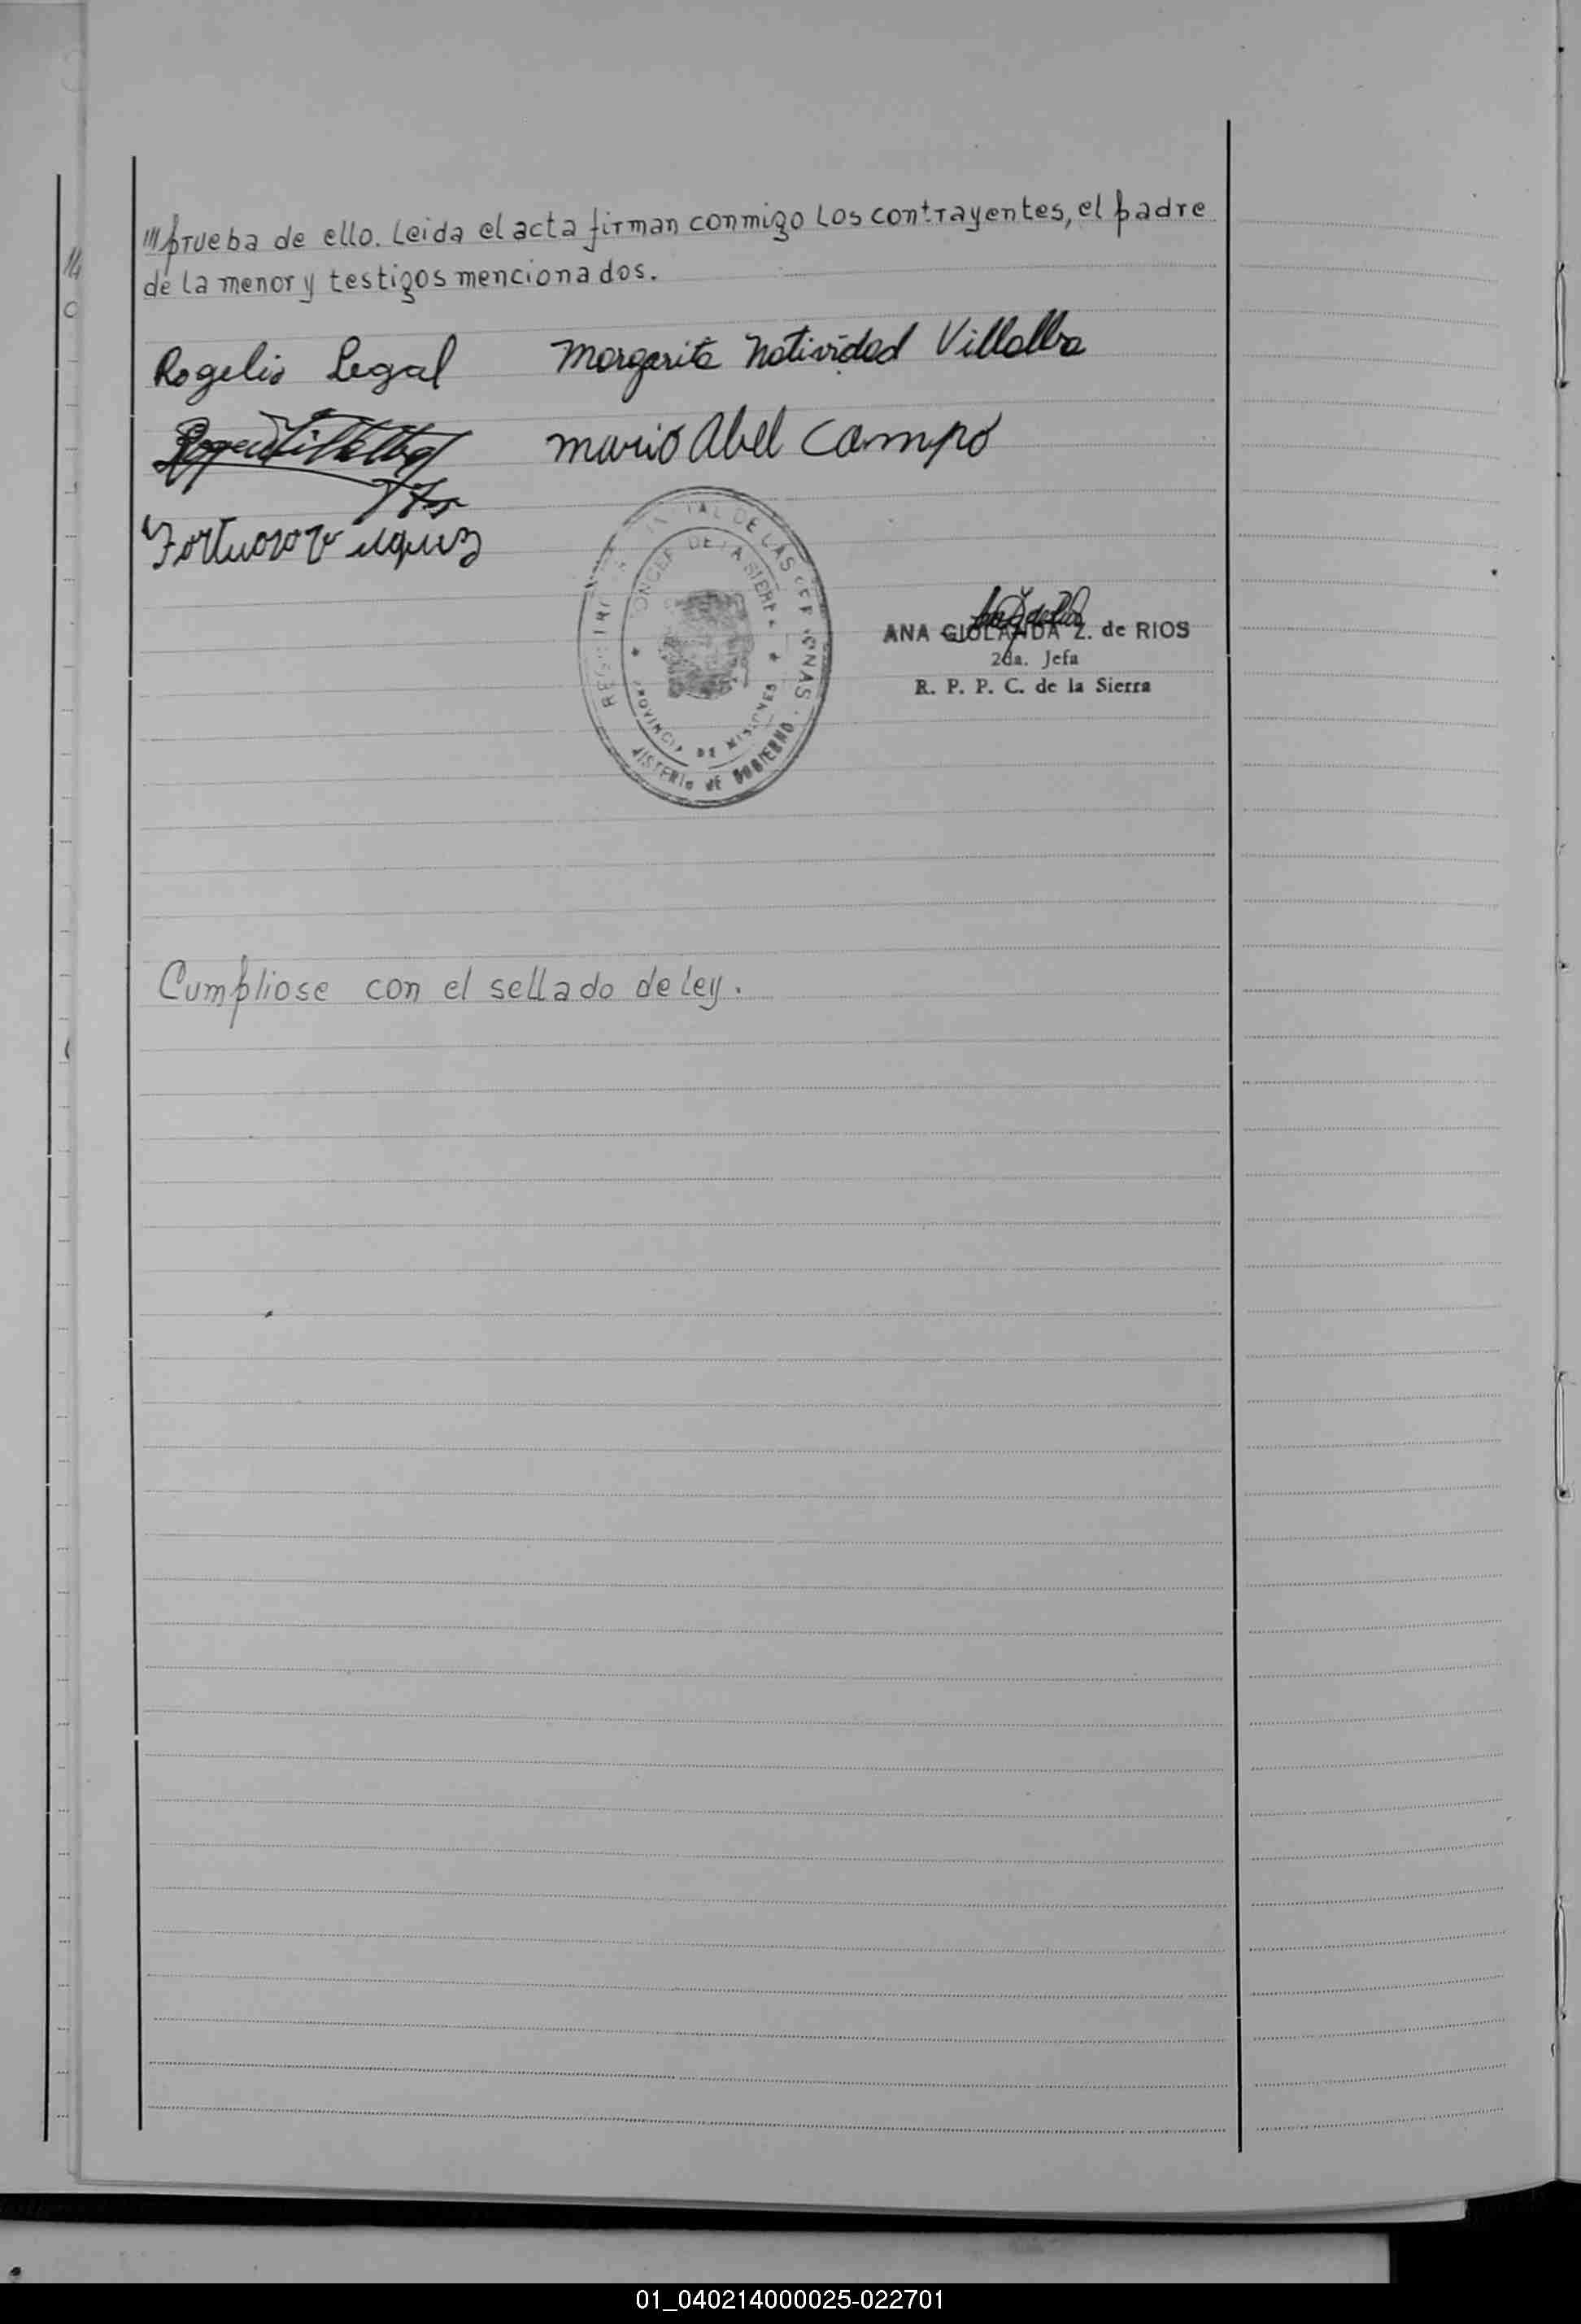 ///prueba de ello. Leida el acta firman conmigo los contrayentes, el padre
de la menor y testigos mencionados.
Rogelio Legal Margarita Natividad Villalba
Villalba Mario Abel Campo
Fortunoso
DE LAS PERSONAS
DE LA SIERRA
PROVINCIA DE MISIONES
MISTERIO DE GOBIERNO
ANA GIOLANDA Z. de RIOS
2da. Jefa
R. P. P. C. de la Sierra
Cumpliose con el sellado de ley.
01_040214000025-022701